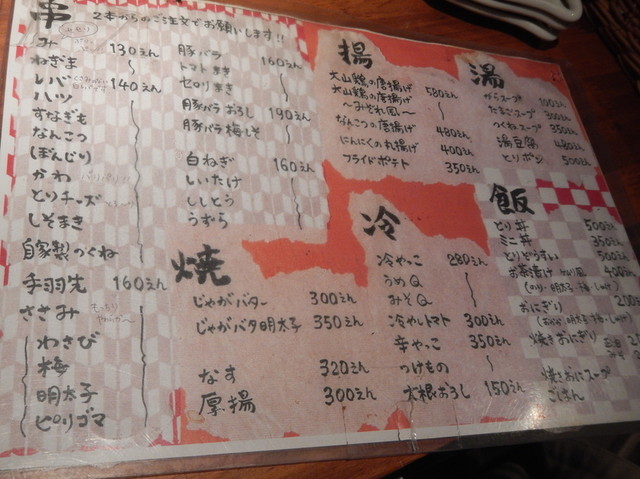 串 2本からのご注文でお願いします!!
み 130えん
ねぎま
レバ 140えん
ハツ
すなぎも
なんこつ
ぼんじり
かわ
とりチーズ
しそまき
自家製つくね
手羽先 160えん
ささみ
わさび
梅
明太子
ピリゴマ
豚バラ 160えん
トマトまき
セロリまき
豚バラおろし 190えん
豚バラ梅しそ
白ねぎ 160えん
しいたけ
ししとう
うずら
焼
じゃがバター 300えん
じゃがバタ明太子 350えん
なす 320えん
厚揚 300えん
揚
大山鶏の唐揚げ 580えん
大山鶏の唐揚げ
〜みぞれ風〜
なんこつの唐揚げ 480えん
にんにくの丸揚げ 400えん
フライドポテト 350えん
冷
冷やっこ 280えん
うめQ
みそQ
冷やしトマト 300えん
辛やっこ 350えん
つけもの
大根おろし 150えん
湯
がらスープ 100えん
たまごスープ 300えん
つくねスープ 350えん
湯豆腐 480えん
とりポン 500えん
飯
とり丼 500えん
ミニ丼 350えん
とりぞうすい 500えん
お茶漬け
おにぎり
焼きおにぎり
焼きおにスープ
ごはん